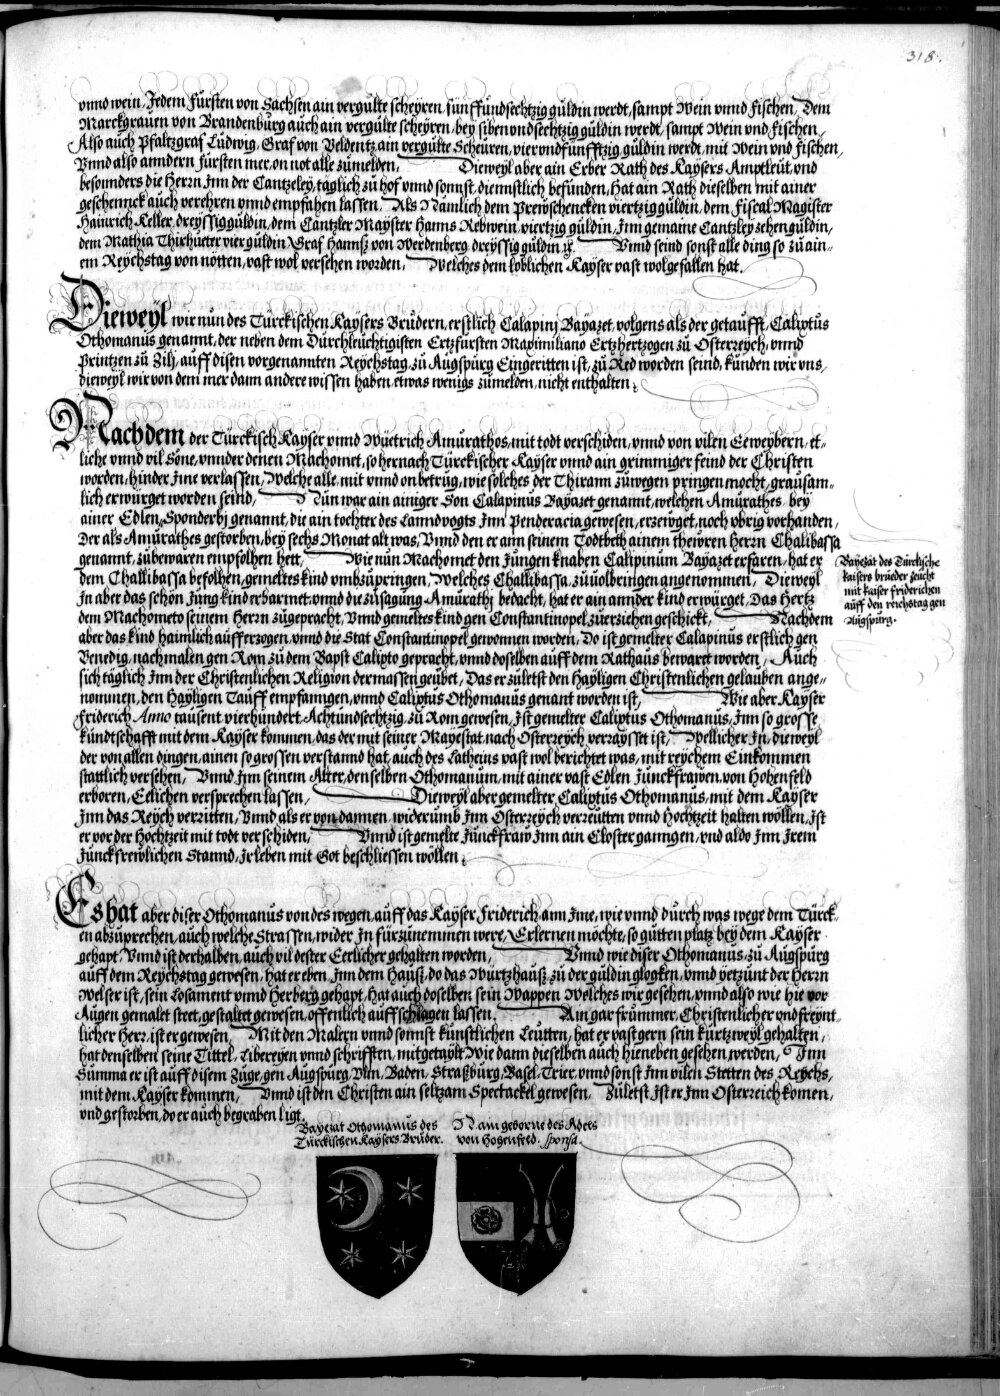 318.
vnnd wein, Jedem Fürsten von Sachsen ain vergülte scheyren, fünffündsechtzig güldin werdt, sampt Wein vnnd Fischen, Dem
Marckgrauen von Brandenbürg auch ain vergülte scheyren, bey siben vnd sechtzig güldin werdt, sampt Wein vnd fischen,
Also auch Pfaltzgraf Lüdwig, Graf von Veldentz ain vergülte Scheüren, vier vnd fünfftzig güldin werdt, mit Wein vnd fischen,
Vnnd also anndern fürsten mer, on not alle zümelden, Dieweyl aber ain Erber Rath des Kaysers Amptleüt, vnd
besounders die Herrn Jnn der Cantzeley, täglich zü hof vnnd sonnst, diennstlich befünden, Hat ain Rath dieselben mit ainer
geschennck auch verehren vnnd empfahen lassen, Als Nämlich dem Prewschencken viertzig güldin, dem Fiscal Magister
Hainrich Keller, dreyssig güldin, dem Cantzler Mayster Hanns Rebwein, viertzig güldin, Jnn gemaine Cantzley zehen güldin,
dem Mathia Thirhüeter vier güldin, Graf Hannß von Werdenberg, dreyssig güldin Vnnd seind sonst alle ding so zü ain-
em Reychstag von nötten, vast wol versehen worden, Welches dem loblichen Kayser vast wolgefallen hat.
Dieweyl wir nün des Türckischen Kaysers Brüdern, erstlich Calapinj Bayazet, volgens als der getaufft, Caliptus
Othomanus genannt, der neben dem Dürchleüchtigisten Ertzfürsten Maximiliano Ertzhertzogen zü Osterreych, vnnd
Printzen zü Zilj, auff disen vorgenannten Reychstag, zü Aügspürg Eingeritten ist, zü Red worden seind, künden wir vns,
dieweyl wir von dem mer dann andere wissen haben, etwas wenigs zümelden, nicht enthalten,
Nachdem der Türckisch Kayser vnnd Wüetrich Amürathes, mit todt verschiden, vnnd von vilen Eeweybern, et-
liche vnnd vil Söne, vnnder denen Machomet, so hernach Türckischer Kayser vnnd ain grimmiger feind der Christen
worden, hinder Jme verlassen, Welche alle, mit vnnd on betrüg, wie solches der Thirann züwegen pringen mocht, graüsam-
lich erwürget worden seind, Nün war ain ainiger Son Calapinus Bayazet genannt, welchen Amürathes, bey
ainer Edlen, Sponderbj genannt, die ain tochter des Lanndvogts Jnn Penderacia gewesen, erzeüget, noch vbrig vorhanden,
Der als Amürathes gestorben, bey sechs Monat alt was, Vnnd den er ann seinem Todtbeth ainem theüren Herrn Chalibassa
genannt, zübewaren empfolhen hett, Wie nün Machomet den Jüngen knaben Calipinum Bayazet erfaren, hat er
dem Challibassa befolhen, gemeltes kind vmbzüpringen, Welches Challibassa, zü volbringen angenommen, Dieweyl
Jn aber das schön Jüng kind erbarmet, vnnd die züsagüng Amürathj bedacht, hat er ain annder kind erwürget, Das Hertz
dem Machometo seinem Herrn zügepracht, Vnnd gemeltes kind gen Constantinopel züerziehen geschickt, Nachdem
aber das kind haimlich aüfferzogen, vnnd die Stat Constantinopel gewonnen worden, Do ist gemelter Calapinus erstlich gen
Venedig, nachmalen gen Rom zü dem Bapst Calipto gepracht, vnnd doselben auff dem Rathaus bewaret worden, Auch
sich täglich Jnn der Christenlichen Religion dermassen geübet, Das er zületst den Hayligen Christenlichen gelauben ange-
nommen, den Hayligen Tauff empfanngen, vnnd Caliptus Othomanus genant worden ist, Wie aber Kayser
Friderich Anno tausent vierhündert, Achtündsechtzig, zü Rom gewesen, Jst gemelter Caliptus Othomanus, Jnn so grosse
kündtschafft mit dem Kayser kommen, das der mit seiner Mayestat nach Osterreych verraysset ist, Wellicher Jn, dieweyl
der von allen dingen, ainen so grossen verstannd hat, auch des Latheins vast wol berichtet was, mit reychem Einkommen
stattlich versehen, Vnnd Jnn seinem Alter, denselben Othomanum, mit ainer vast Edlen Jünckfrawen, von Hohenfeld
erboren, Eelichen versprechen lassen, Dieweyl aber gemelter Caliptus Othomanus, mit dem Kayser
Jnn das Reych verritten, Vnnd als er von dannen, widerümb Jnn Osterreych verreütten vnnd Hochtzeit halten wöllen, Jst
er vor der Hochtzeit mit todt verschiden, Vnnd ist gemelte Jünckfraw Jnn ain Closter ganngen, vnd aldo Jnn Jrem
Jünckfrewlichen Stannd, Jr leben mit Got beschliessen wöllen,
Bayezat des Türckische
kaisers brüeder zeücht
mit kaiser friderichen
auff den reichstag gen
Augspürg.
Es hat aber diser Othomanus von des wegen, auff das Kayser Friderich, ann Jme, wie vnnd dürch was wege dem Türck-
en abzüprechen, auch welche Strassen, wider Jn fürzünemmen were, Erlernen möchte, so gütten platz bey dem Kayser
gehapt, Vnnd ist derhalben, auch vil dester Eerlicher gehalten worden, Vnnd wie diser Othomanus, zü Aügspürg
auff dem Reychstag gewesen, hat er eben Jnn dem Hauß, do das Würtzhauß zü der güldin glogken, vnnd yetzünt der Herrn
Welser ist, sein Losament vnnd Herberg gehapt, Hat auch doselben sein Wappen Welches wir gesehen, vnnd also wie hie vor
Augen gemalet steet, gestaltet gewesen, offentlich auffschlagen lassen. Ain gar frümmer, Christenlicher vnd freünt-
licher Herr, ist er gewesen, Mit den Malern vnnd sonnst künstlichen Leütten, hat er vast gern sein kürtzweyl gehalten,
hat denselben seine Tittel, Libereyen vnnd schrifften, mitgetaylt Wie dann dieselben auch hieneben gesehen werden, Jnn
Summa er ist auff disem Züge, gen Augspürg, Vlm, Baden, Straßbürg, Basel, Trier, vnnd sonst Jnn vilen Stetten des Reychs,
mit dem Kayser kommen, Vnnd ist den Christen ain seltzam Spectackel gewesen, Zületst Jst er Jnn Osterreich komen,
vnd gestorben, do er auch begraben ligt,
Bayezat Othomanus des
Türckischen Kaysers Brüder.
N. ain geborne des Adels
von Hohenfeld. sponsa.